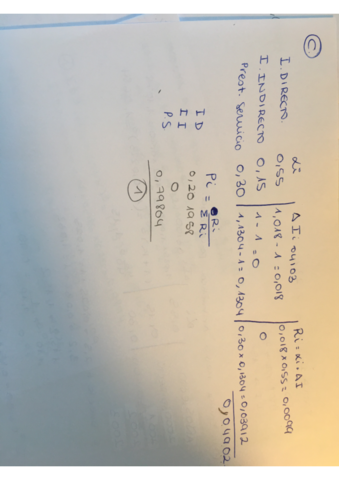 C
αi ΔIi 04/03 Ri = αi · ΔI
I. DIRECTO. 0,55 1,018 - 1 = 0,018 0,018 x 0,55 = 0,0099
I. INDIRECTO 0,15 1 - 1 = 0 0
Prest. Servicio 0,30 1,1304 - 1 = 0,1304 0,30 x 0,1304 = 0,03912
0,04902
Pi = Ri / Σ Ri
I D 0,201958
I I 0
P S 0,79804
1